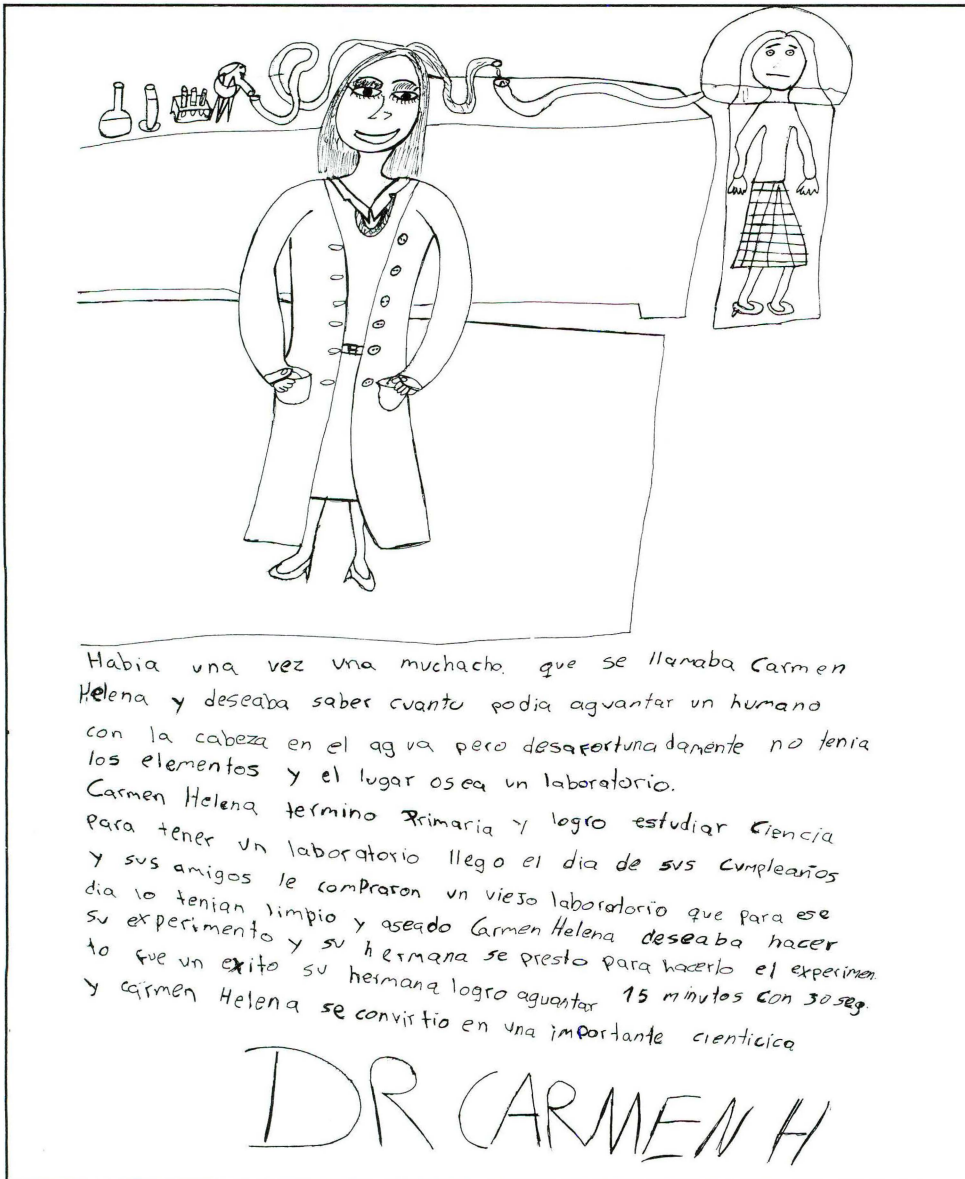 Habia una vez una muchacha que se llamaba Carmen
Helena y deseaba saber cuanto podia aguantar un humano
con la cabeza en el agua pero desafortunadamente no tenia
los elementos y el lugar osea un laboratorio.
Carmen Helena termino Primaria y logro estudiar Ciencia
para tener un laboratorio llego el dia de sus Cumpleaños
y sus amigos le compraron un viejo laboratorio que para ese
dia lo tenian limpio y aseado Carmen Helena deseaba hacer
su experimento y su hermana se presto para hacerlo el experimen
to fue un exito su hermana logro aguantar 15 minutos con 30 seg.
y carmen Helena se convirtio en una importante cienticica
DR CARMEN H